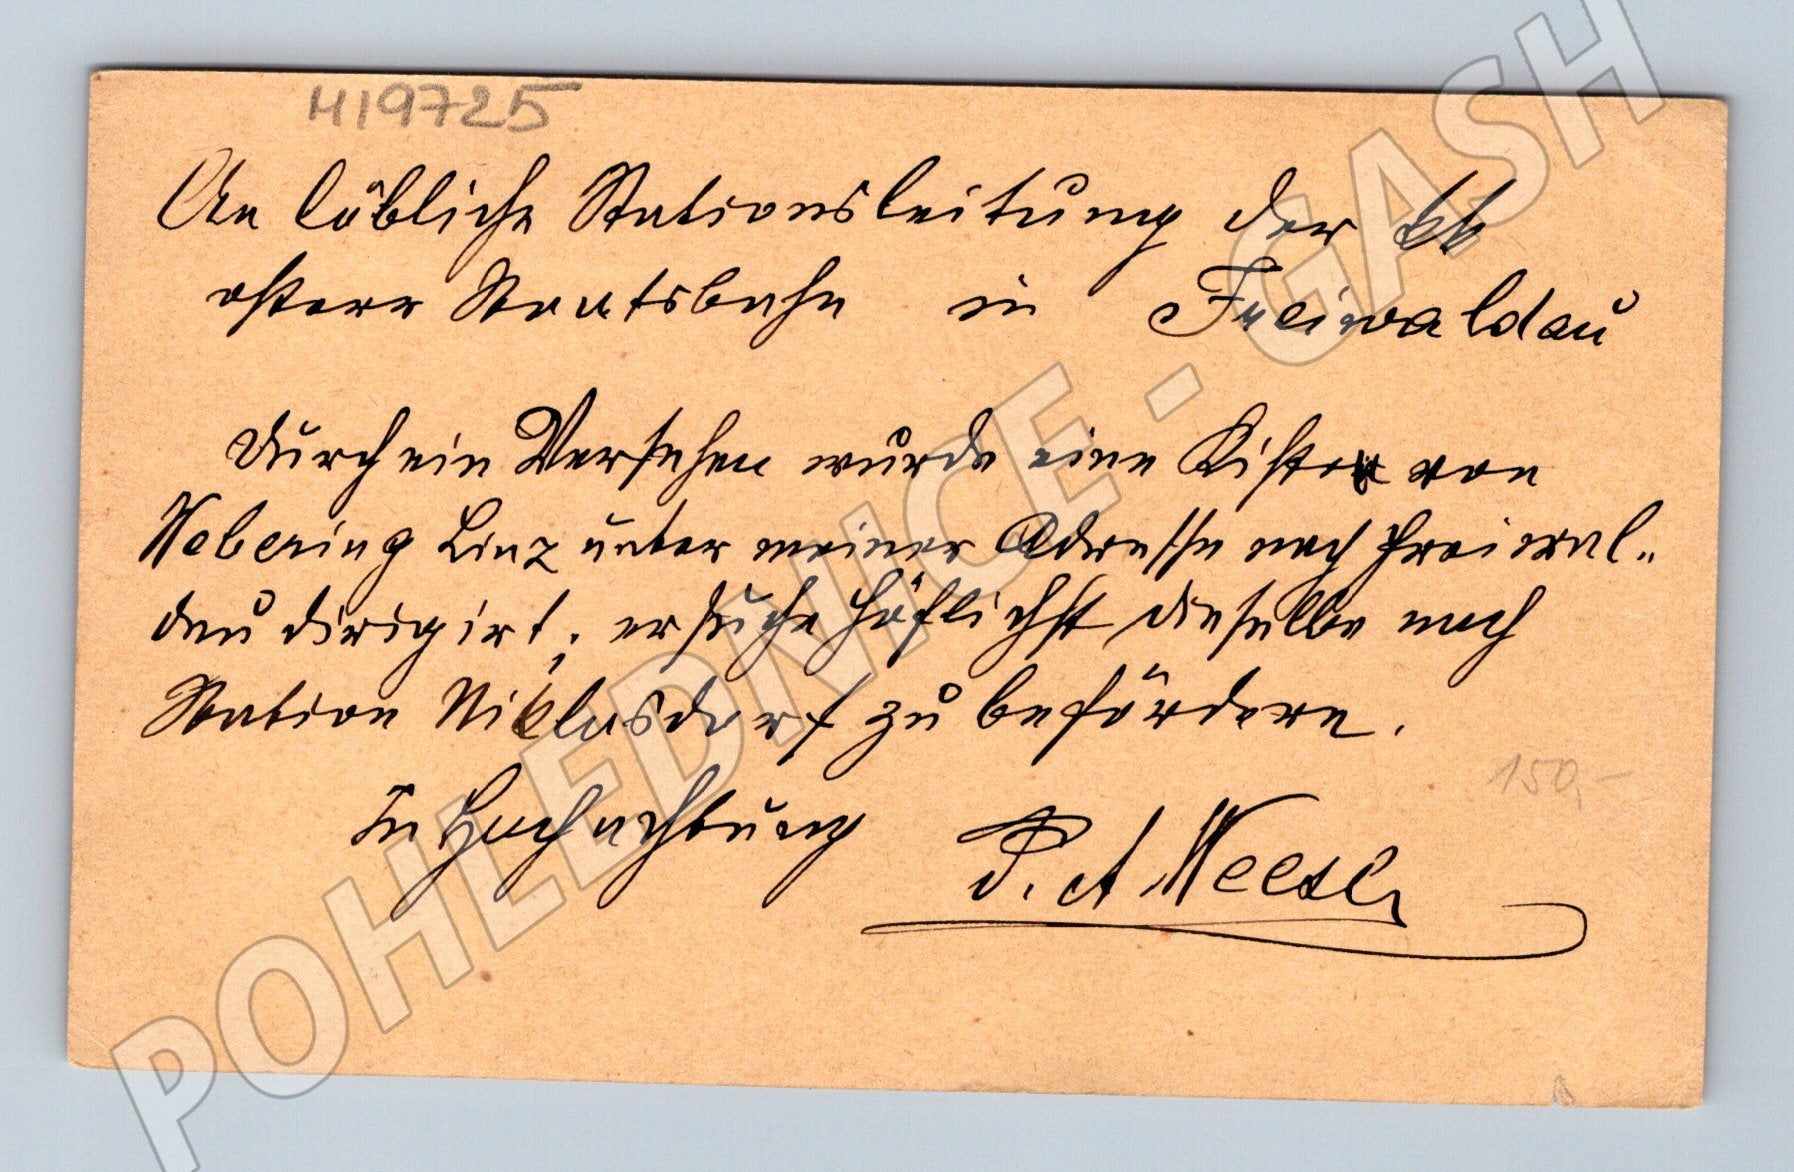 H19725
An löbliche Stationsleitung der kk
österr Staatsbahn in Freiwaldau
Durch ein Versehen wurde eine Kiste von
Nebering Linz unter meiner Adresse nach Freiwal-
dau dirigirt, ersuche höflichst dieselbe nach
Station Niklasdorf zu befördern.
150,-
In Hochachtung
P. A Weese
POHLEDNICE - GASH